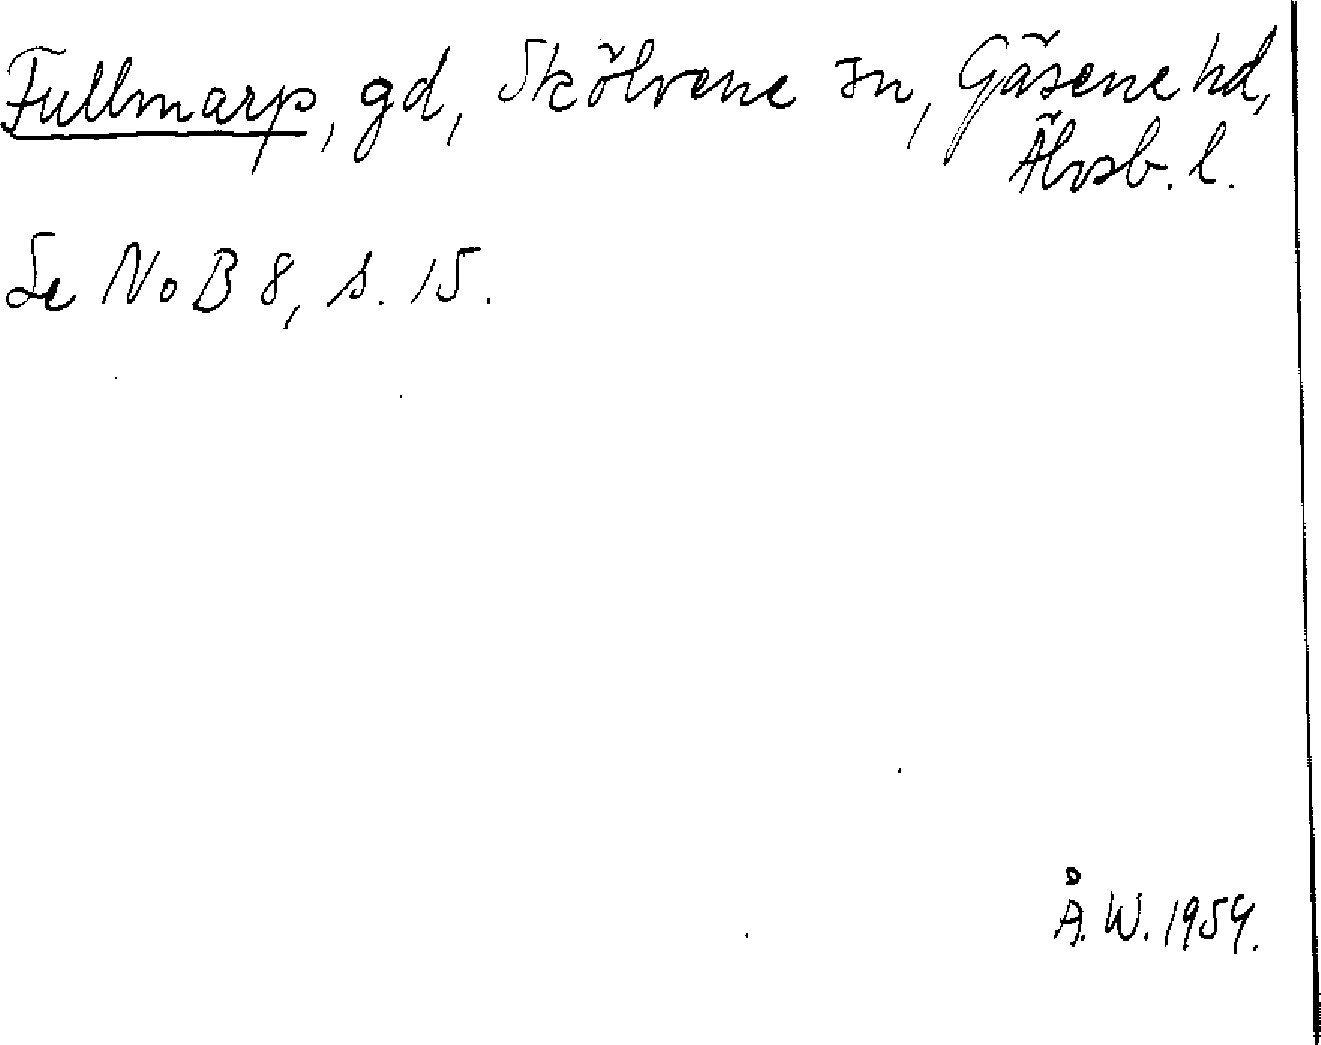 Fullmarp, gd, Skölvene sn, Gäsene hd,
Älvsb. l.
Se NoB 8, s. 15.
Å. W. 1954.